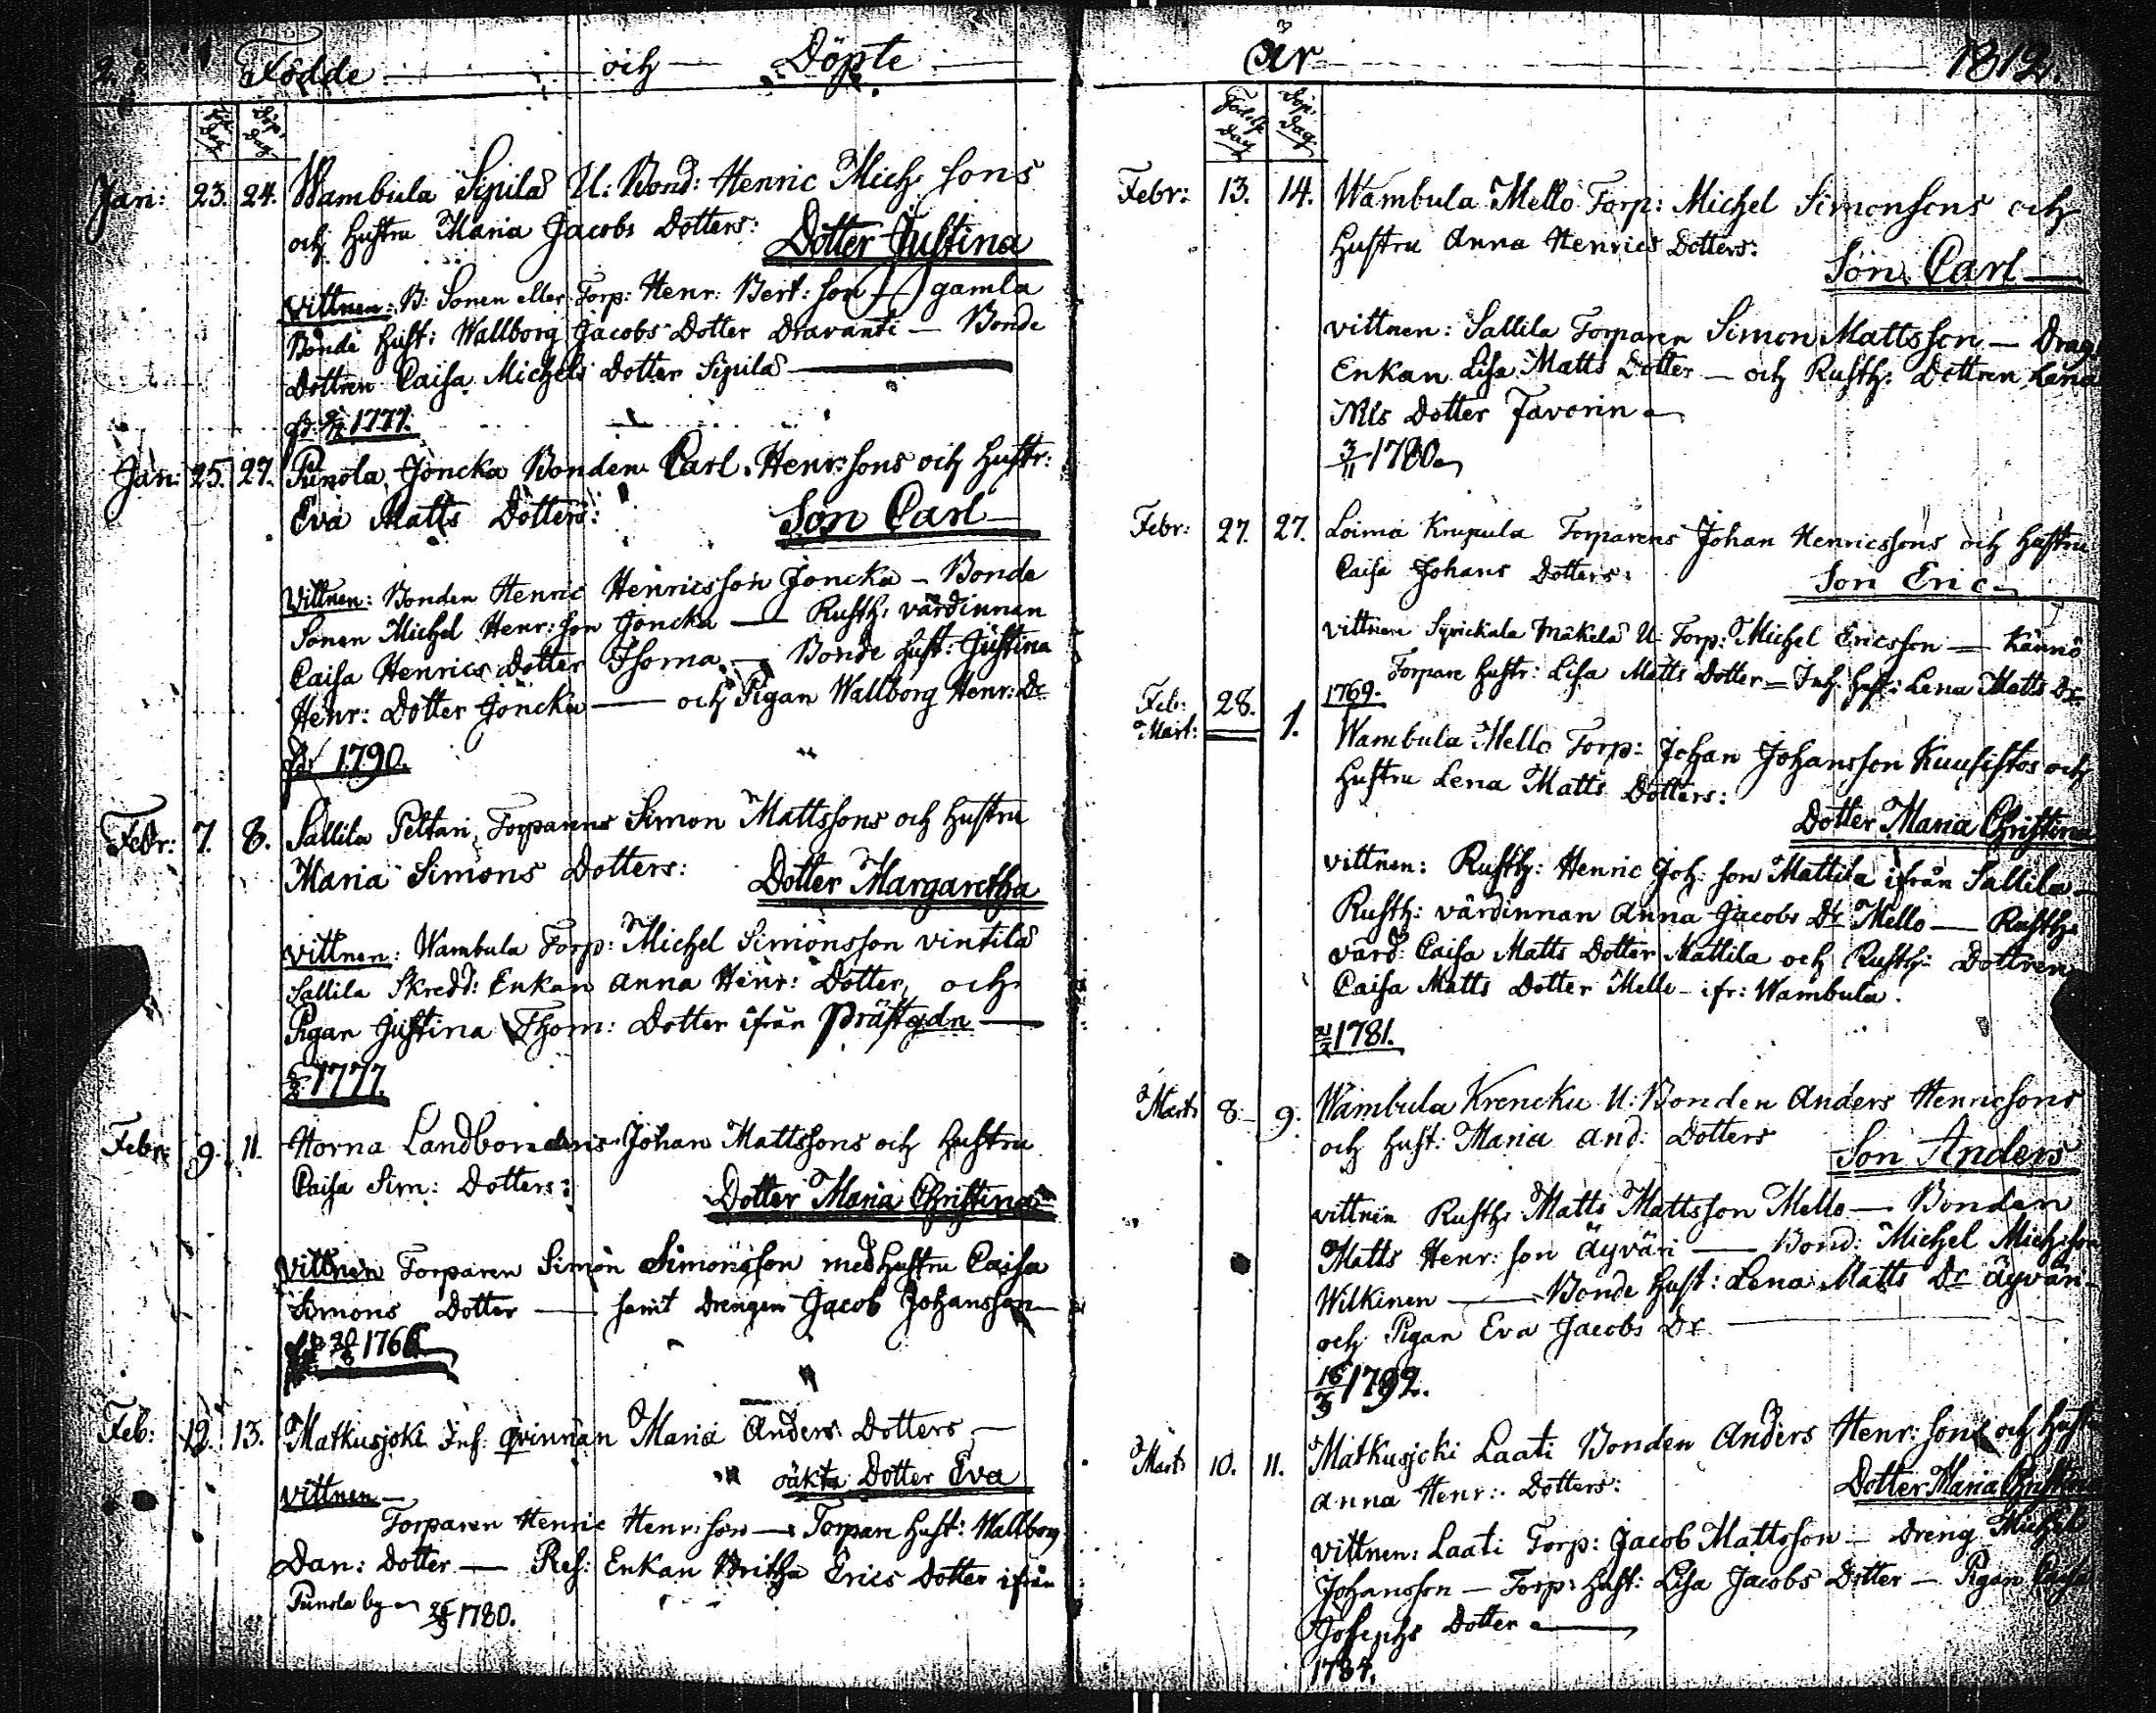 2.
Födde och Döpte
Föd. Dag Döp. Dag
Jan: 23. 24. Wambula Sipilä U: Bond: Henric Mich sons
och hustru Maria Jacobs Dotters: Dotter Justina
Vittnen: B: Sonen eller Torp: Henr: Bert: son gamla
Bonde hust: Wallborg Jacobs Dotter Dravanti — Bonde
Dottren Caisa Michels Dotter Sipilä
1777.
Jan: 25. 27. Punola Joncka Bonden Carl Henr: sons och hustr:
Eva Matts Dotters: Son Carl
Vittnen: Bonden Henric Henricsson Joncka — Bonde
Sonen Michel Henr: son Joncka — Rusth: värdinnan
Caisa Henrics Dotter Thoma — Bonde hust: Justina
Henr: Dotter Joncka — och Pigan Wallborg Henr: Dr
1790.
Febr: 7. 8. Sallila Peltari Torparens Simon Mattssons och hustru
Maria Simons Dotters: Dotter Margaretha
Vittnen: Wambula Torp: Michel Simonsson vintilä
Sallila Skredd: Enkan Anna Henr: Dotter, och
Pigan Justina Thom: Dotter ifrån Prästgdn
1777.
Febr: 9. 11. Horna Landbondens Johan Mattssons och hustru
Caisa Sim: Dotters: Dotter Maria Christina
Vittnen Torparen Simon Simonsson med hustru Caisa
Simons Dotter — samt drengen Jacob Johansson
1766
Feb: 12. 13. Matkusjoki Inh. qvinnan Maria Anders Dotters —
oäkta Dotter Eva
Vittnen —
Torparen Henric Henr: son — Torpare hust: Wallborg
Dan: Dotter — Res: Enkan Britha Erics Dotter ifrån
Punola by 1780.
År 1812.
Födelse Dag Döp. Dag
Febr: 13. 14. Wambula Mello Torp: Michel Simonsons och
hustru Anna Henrics Dotters:
Son Carl
Vittnen: Sallila Torparen Simon Mattsson — Drag:
Enkan Lisa Matts Dotter — och Rusth: Dottren Lena
Nils Dotter Favorin
3/11 1780
Febr: 27. 27. Loima Krupula Torparens Johan Henricssons och hustru
Caisa Johans Dotters: Son Eric
Vittnen Syrickala Mäkelä U: Torp: Michel Ericsson — Kännö
Torpare hustr: Lisa Matts Dotter — Inh. hust: Lena Matts Dr
1769.
Feb: 28.
Mart: 1. Wambula Mello Torp: Johan Johansson Kuusistos och
hustru Lena Matts Dotters:
Dotter Maria Christina
Vittnen: Rusth: Henric Joh: son Mattila ifrån Sallila —
Rusth: värdinnan Anna Jacobs Dr Mello — Rusth:
värd: Caisa Matts Dotter Mattila och Rusth: Dottren
Caisa Matts Dotter Mello — ifr: Wambula.
1781.
Mart: 8. 9. Wambula Krencku U: Bonden Anders Henricsons
och hust: Maria And: Dotters Son Anders
Vittnen Rusth: Matts Mattsson Mello — Bonden
Matts Henr: son Äyväri — Bond: Michel Mich: son
Wilkinen — Bonde hust: Lena Matts Dr Äyväri —
och Pigan Eva Jacobs Dr
16/3 1792.
Mart: 10. 11. Matkusjoki Laati Bonden Anders Henr: sons och hust
Anna Henr: Dotters: Dotter Maria Christina
Vittnen: Laati Torp: Jacob Mattsson — Dreng Michel
Johansson — Torp: hust: Lisa Jacobs Dotter — Pigan Caisa
Josephs Dotter
1784.